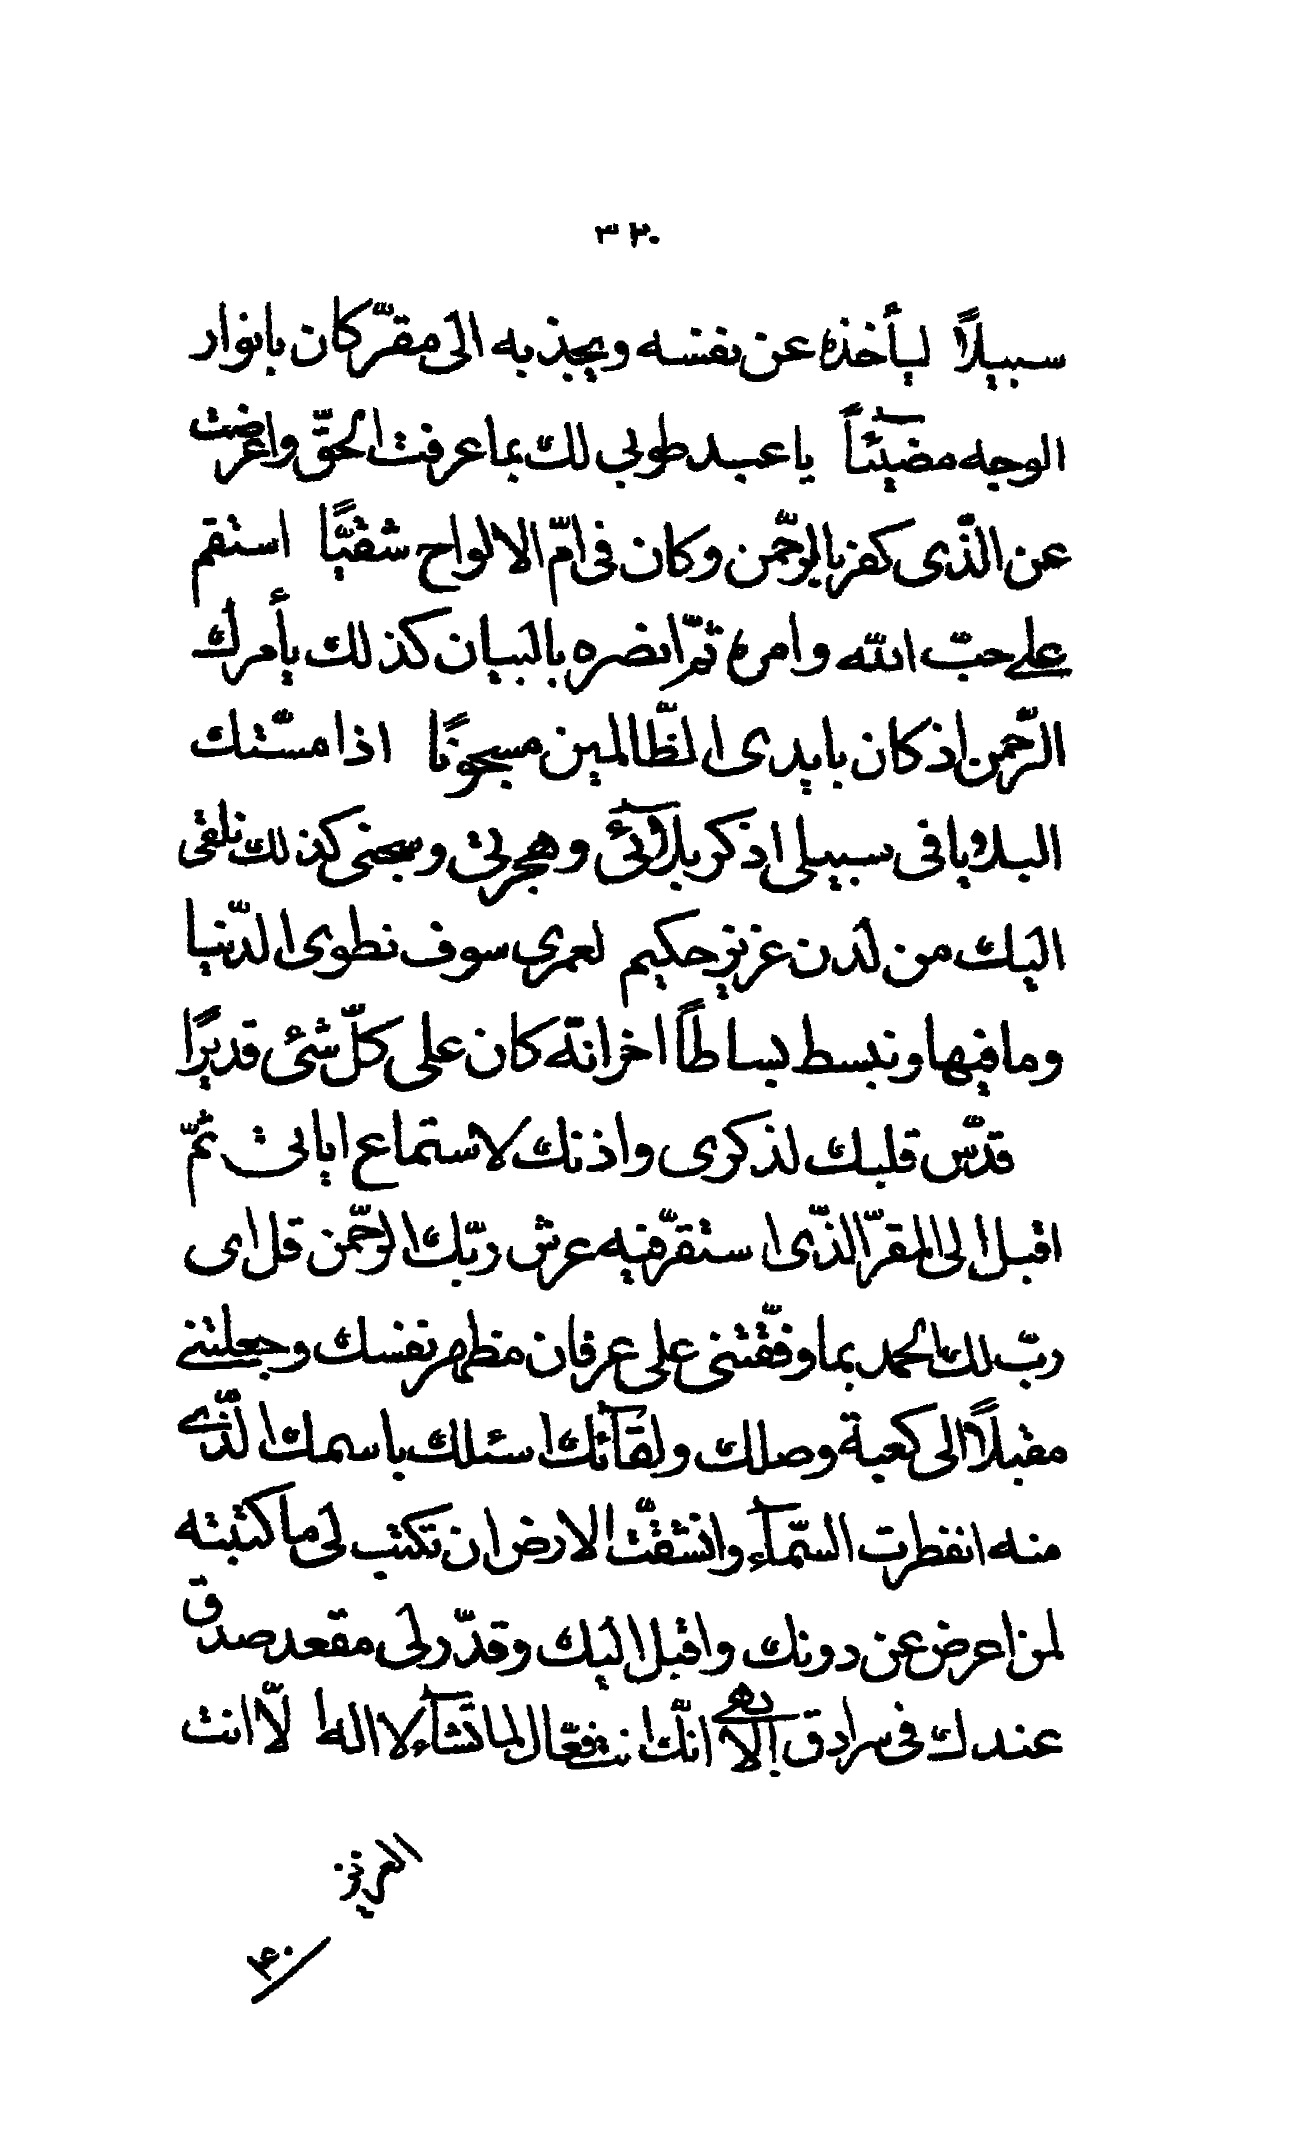 ٣٢٠
سبيلاً ليأخذه عن نفسه ويجذبه الى مقرّ كان بانوار
الوجه مضيئاً يا عبد طوبى لك بما عرفت الحقّ واعرضت
عن الّذى كفر بالرّحمن وكان فى امّ الالواح شقيّاً استقم
على حبّ الله وامره ثمّ انصره بالبيان كذلك يأمرك
الرّحمن اذ كان بايدى الظّالمين مسجوناً اذا مسّتك
البلايا فى سبيلى اذكر بلآئى وهجرتى وسجنى كذلك نلقى
اليك من لدن عزيز حكيم لعمرى سوف نطوى الدّنيا
وما فيها ونبسط بساطاً اخر انّه كان على كلّ شئ قديراً
قدّس قلبك لذكرى واذنك لاستماع اياتى ثمّ
اقبل الى المقرّ الّذى استقرّ فيه عرش ربّك الرّحمن قل اى
ربّ لك الحمد بما وفّقتنى على عرفان مظهر نفسك وجعلتنى
مقبلاً الى كعبة وصلك ولقآئك اسئلك باسمك الّذى
منه انفطرت السّمآء وانشقّت الارض ان تكتب لى ما كتبته
لمن اعرض عن دونك واقبل اليك وقدّر لى مقعد صدق
عندك فى سرادق الابهى انّك انت فعّال لما تشآء لا اله الّا انت
العزيز